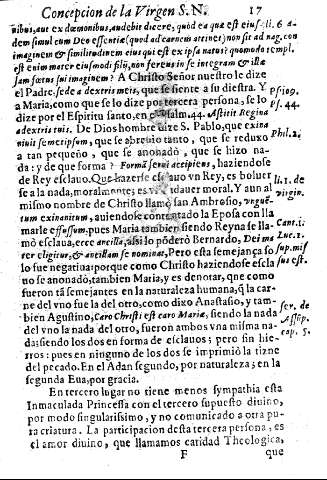 Concepcion de la Virgen S.N. 17
nibus, aut ex dæmonibus, audebit dicere, quòd ea quæ est eius- li. 6 ad
dem simul cum Deo essentiæ (quod ad carnem attinet) non sit ad nag. con
imaginem & similitudinem eius qui est ex ipsa natus? quomodo templ.
est enim mater eiusmodi filij, non ferens in se integram & illæ
sam fœtus sui imaginem? A Christo Señor nuestro le dize
el Padre, sede a dextris meis, que se siente a su diestra. Y Ps. 109.
a Maria, como que se lo dize por tercera persona, se lo Ps. 44.
dize por el Espiritu santo, en psalm. 44. Astitit Regina
a dextris tuis. De Dios hombre dize S. Pablo, que exina Phil. 2.
niuit semetipsum, que se abreuiò tanto, que se reduxo
a tan pequeño, que se anonadò, que se hizo na-
da: y de que forma? Formã serui accipiens, haziendose
de Rey esclauo. Que hazerse esclauo vn Rey, es boluer
se a la nada, moralmente es vn anadauer moral. Y aun al li. 1. de
mismo nombre de Christo llamò san Ambrosio, vnguẽ- virgin.
tum exinanitum, auiendose contentado la Eposa con lla Cant. 1.
marle effusum. pues Maria tambien siendo Reyna se lla-
mò esclaua, ecce ancilla, assi lo põderò Bernardo, Dei ma Luc. 1.
ter eligitur, & ancillam se nominat, Pero esta semejança so sup. mis
lo fue negatiua: porque como Christo haziendose escla sus est.
no se anonadò, tambien Maria, y es denotar, que como
fueron tã semejantes en la naturaleza humana, q̃ la car-
ne del vno fue la del otro, como dixo Anastasio, y tam-
bien Agustino, Caro Christi est caro Mariæ, siendo la nada ser. de
del vno la nada del otro, fueron ambos vna misma na- Assũp.
da: siendo los dos en forma de esclauos; pero sin hie- cap. 5.
rros: pues en ninguno de los dos se imprimiò la tizne
del pecado. En el Adan segundo, por naturaleza; en la
segunda Eua, por gracia.
En tercero lugar no tiene menos sympathia esta
Inmaculada Princessa con el tercero supuesto diuino,
por modo singularissimo, y no comunicado a otra pu-
ra criatura. La participacion desta tercera persona, es
el amor diuino, que llamamos caridad Theologica,
F que